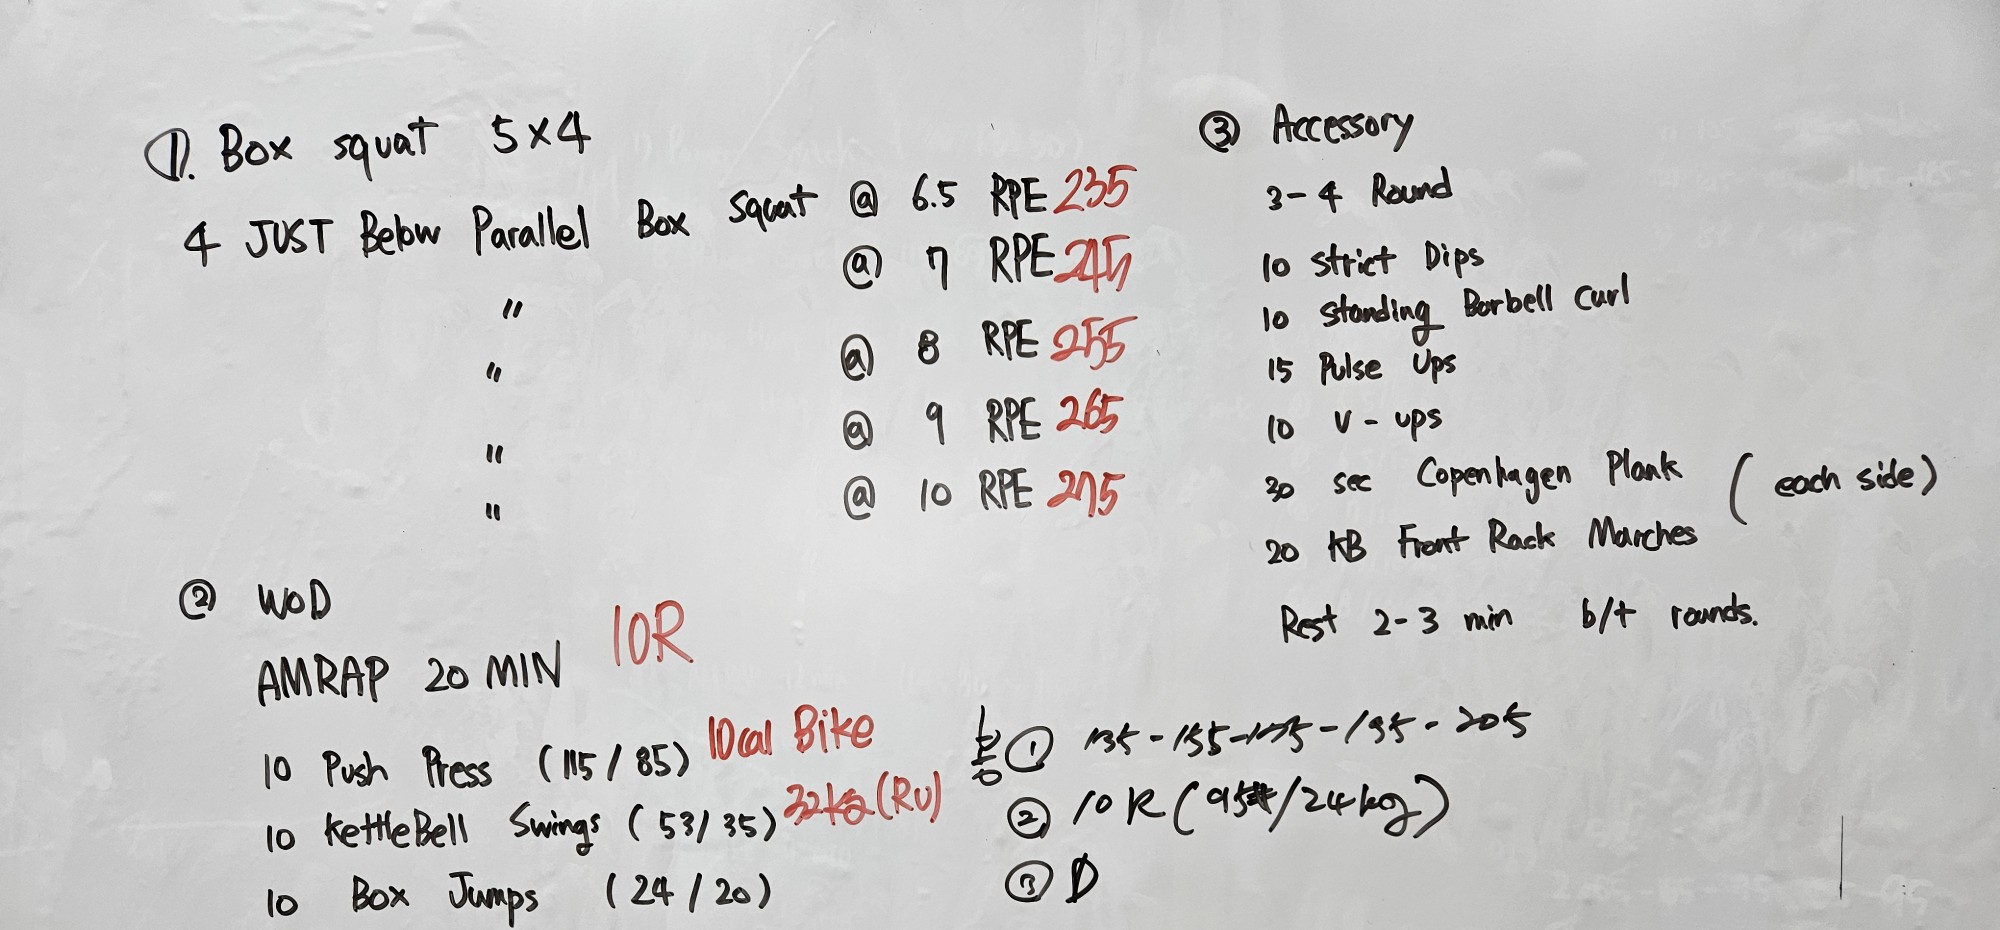 ①. Box squat 5x4
4 JUST Below Parallel Box Squat @ 6.5 RPE 235
@ 7 RPE 245
" @ 8 RPE 255
" @ 9 RPE 265
" @ 10 RPE 275
"
② WOD
AMRAP 20 MIN 10R
10 Push Press (115/85) 10cal Bike
10 KettleBell Swings (53/35) 32kg (RU)
10 Box Jumps (24/20)
③ Accessory
3-4 Round
10 Strict Dips
10 Standing Barbell Curl
15 Pulse Ups
10 V-ups
30 sec Copenhagen Plank (each side)
20 KB Front Rack Marches
Rest 2-3 min b/t rounds.
① 135-155-175-195-205
② 10R (95#/24kg)
③ D